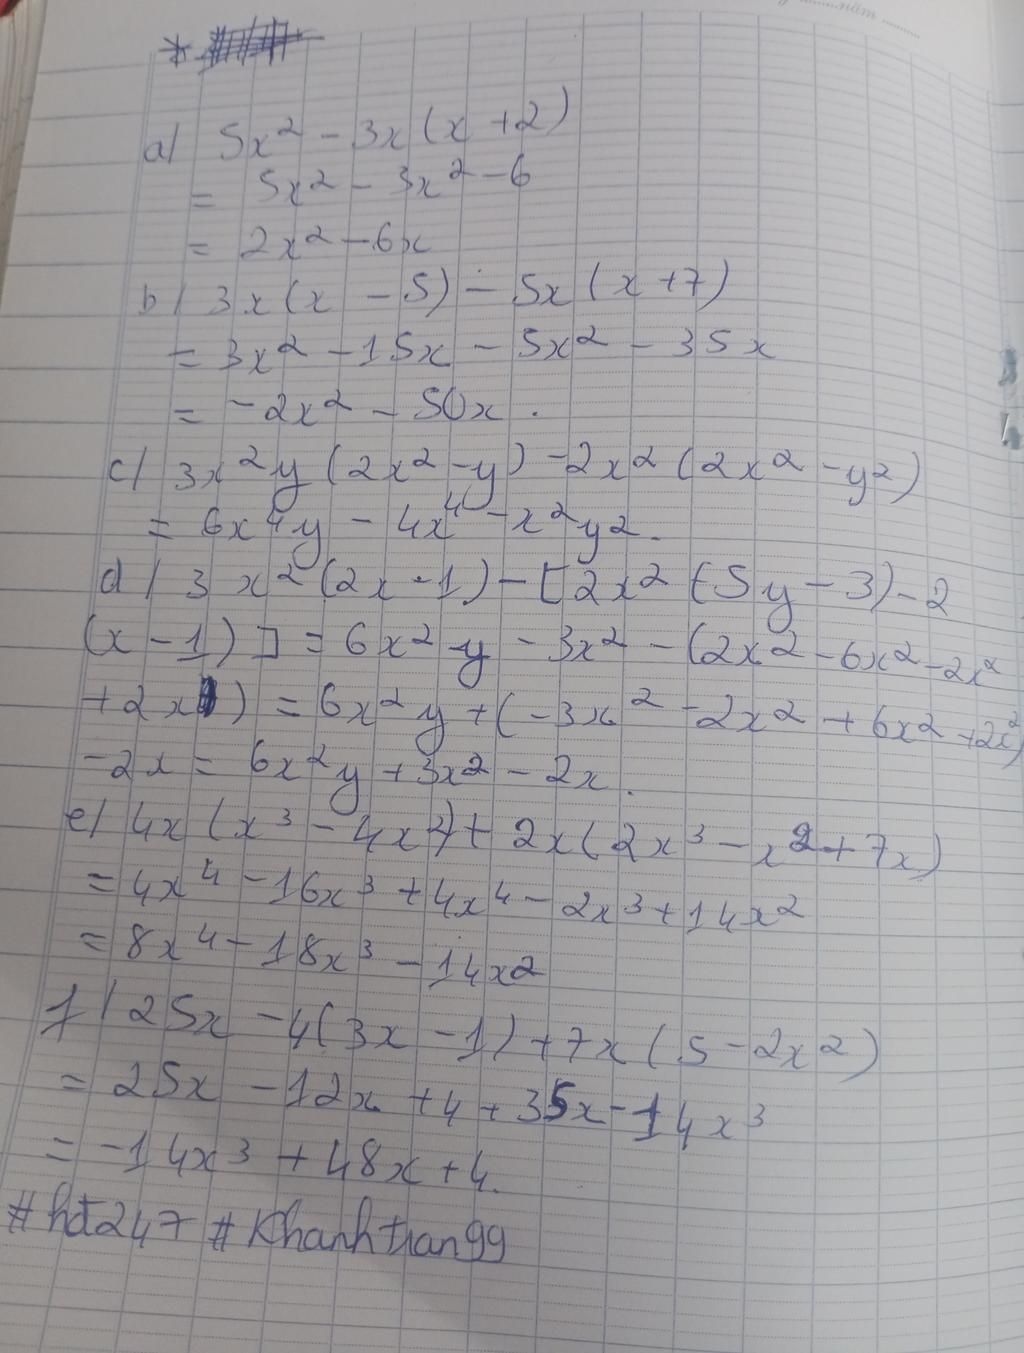 a/ 5x² - 3x(x + 2)
= 5x² - 3x² - 6
= 2x² - 6x
b/ 3x(x - 5) - 5x(x + 7)
= 3x² - 15x - 5x² - 35x
= -2x² - 50x.
c/ 3x²y(2x² - y) - 2x²(2x² - y²)
= 6x⁴y - 4x⁴ - x²y².
d/ 3x²(2x - 1) - [2x²(5y - 3) - 2
(x - 1)] = 6x²y - 3x² - (2x² - 6x² - 2x²
+ 2x) = 6x²y + (-3x² - 2x² + 6x² + 2x²)
- 2x = 6x²y + 3x² - 2x.
e/ 4x(x³ - 4x²) + 2x(2x³ - x² + 7x)
= 4x⁴ - 16x³ + 4x⁴ - 2x³ + 14x²
= 8x⁴ - 18x³ - 14x2
f/ 25x - 4(3x - 1) + 7x(5 - 2x²)
= 25x - 12x + 4 + 35x - 14x³
= -14x³ + 48x + 4.
#hdt247 #Khanhtran99